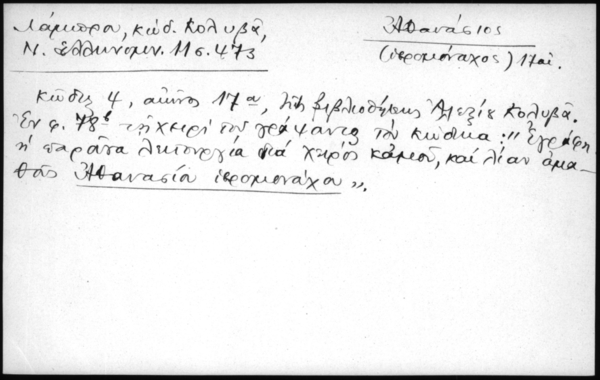 Λάμπρου, κώδ. Κολυβᾶ,
Ν. Ἑλληνομν. 11 σ. 473
Ἀθανάσιος
(ἱερομόναχος) 17 αἰ.
Κῶδιξ 4, αἰῶνος 17ου, τῆς βιβλιοθήκης Ἀλεξίου Κολυβᾶ.
Ἐν φ. 78β τῇ χειρὶ τοῦ γράψαντος τὸν κώδικα: "Ἐγράφη
ἡ παροῦσα λειτουργία διὰ χειρὸς κἀμοῦ, καὶ λίαν ἀμα-
θοῦς Ἀθανασίου ἱερομονάχου".